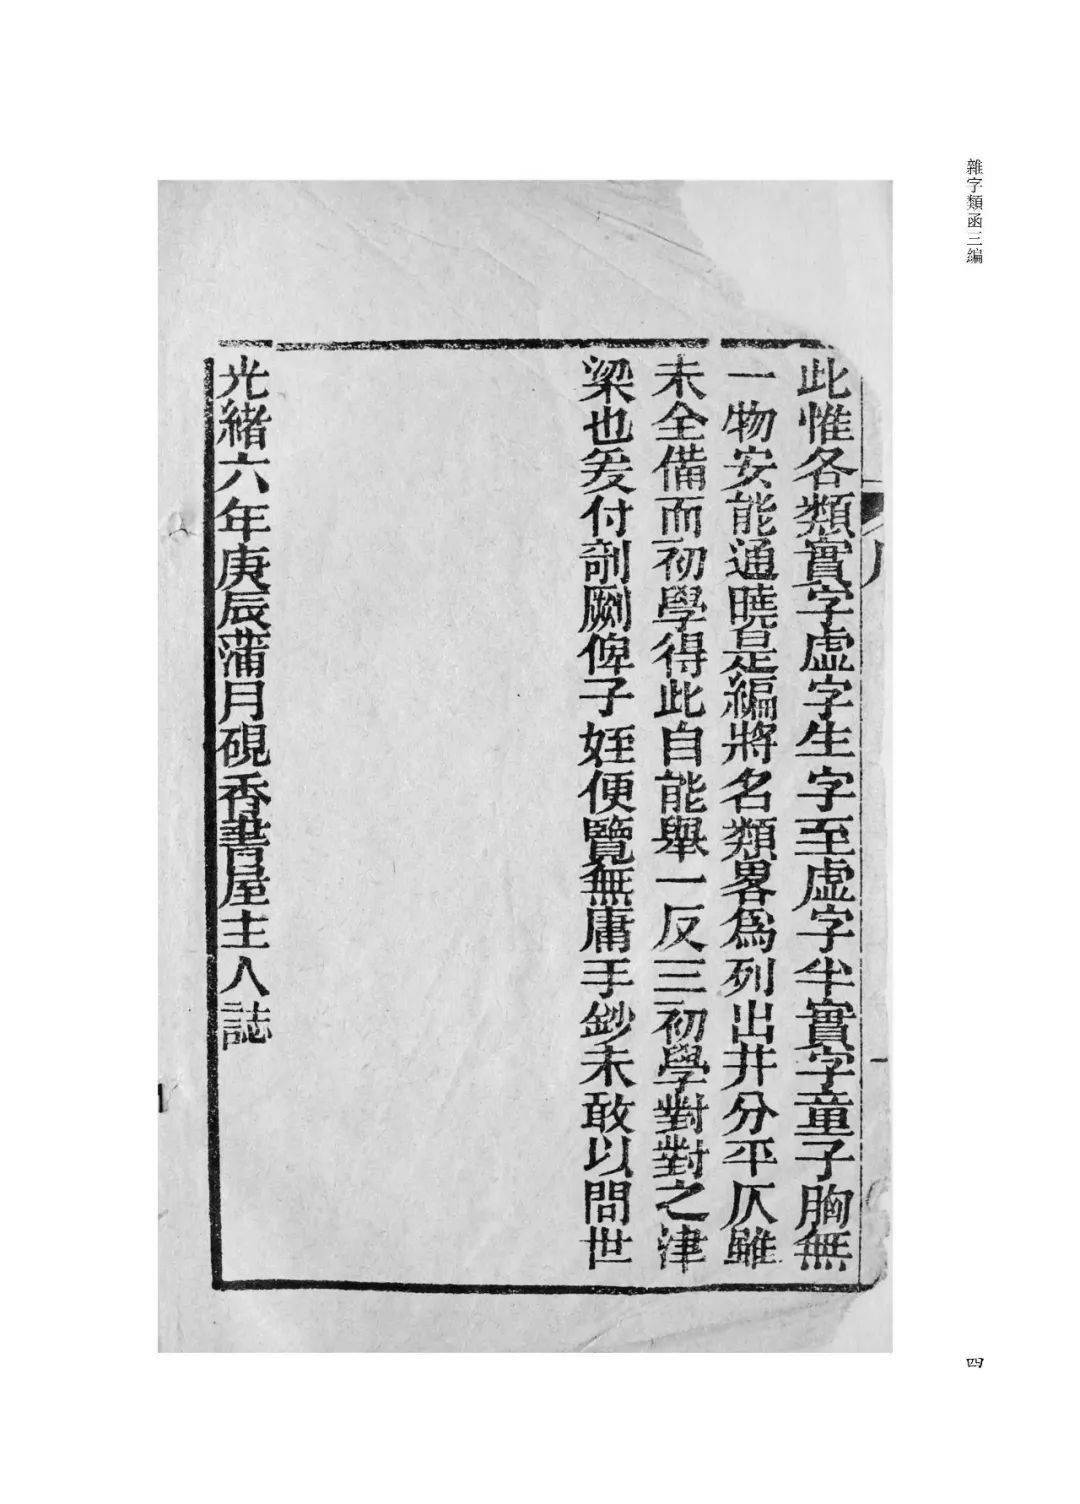 雜字類函三編
此惟各類實字虛字生字至虛字半實字童子胸無
一物安能通曉是編將名類畧爲列出并分平仄雖
未全備而初學得此自能舉一反三初學對對之津
梁也爰付剞劂俾子姪便覽無庸手鈔未敢以問世
光緒六年庚辰蒲月硯香書屋主人誌
四